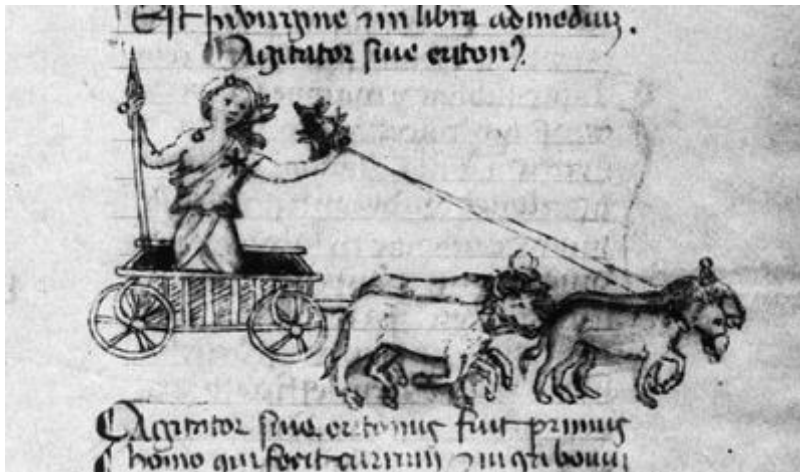 Est in uirgine & in libra ad mediuz.
Agitator siue eriton9.
Agitator siue eritonius fuit primus
homo qui fecit currum & in quibouui